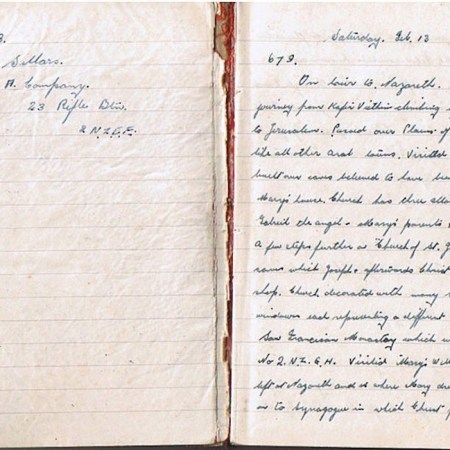 Sellars.
A. Company.
23 Rifle Btn.
2 N.Z.E.F.
Saturday. Feb. 13
673.
On tour to Nazareth.
journey from Kefar Vitkin climbing
to Jerusalem. Passed over Plains of
like all other Arab towns. Visited
built over caves believed to have
Mary's house. Church has three
Gabriel the angel + Mary's parents
A few steps further is Church of St. J
cave which Joseph + afterwards Christ
shop. Church decorated with many
windows each representing a different
San Francison Monastery which
No 2. N.Z.G.H. Visited Mary's Well
left at Nazareth and is where Mary
on to Synagogue in which Christ